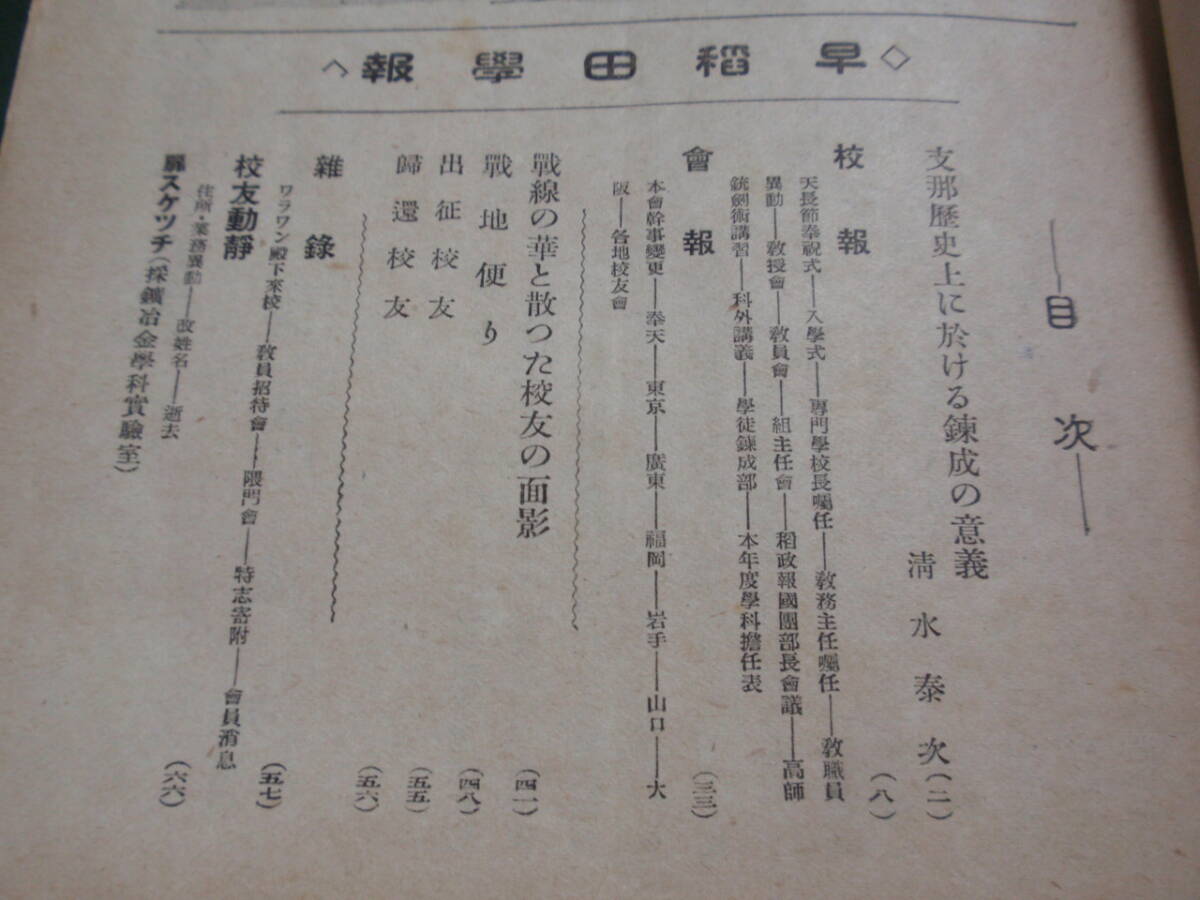 ◇早稻田學報へ
――目次――
支那歷史上に於ける鍊成の意義
淸水泰次(二)
校報(八)
天長節奉祝式――入學式――專門學校長囑任――敎務主任囑任――敎職員
異動――敎授會――敎員會――組主任會――稻政報國團部長會議――高師
銃劍術講習――科外講義――學徒鍊成部――本年度學科擔任表
會報(三三)
本會幹事變更――奉天――東京――廣東――福岡――岩手――山口――大
阪――各地校友會
戰線の華と散つた校友の面影(四一)
戰地便り(四八)
出征校友(五五)
歸還校友(五六)
雜錄(五七)
ワラワン殿下來校――敎員招待會――隈門會――特志寄附――會員消息
校友動靜(六六)
住所・業務異動――改姓名――逝去
扉スケッチ(採鑛冶金學科實驗室)